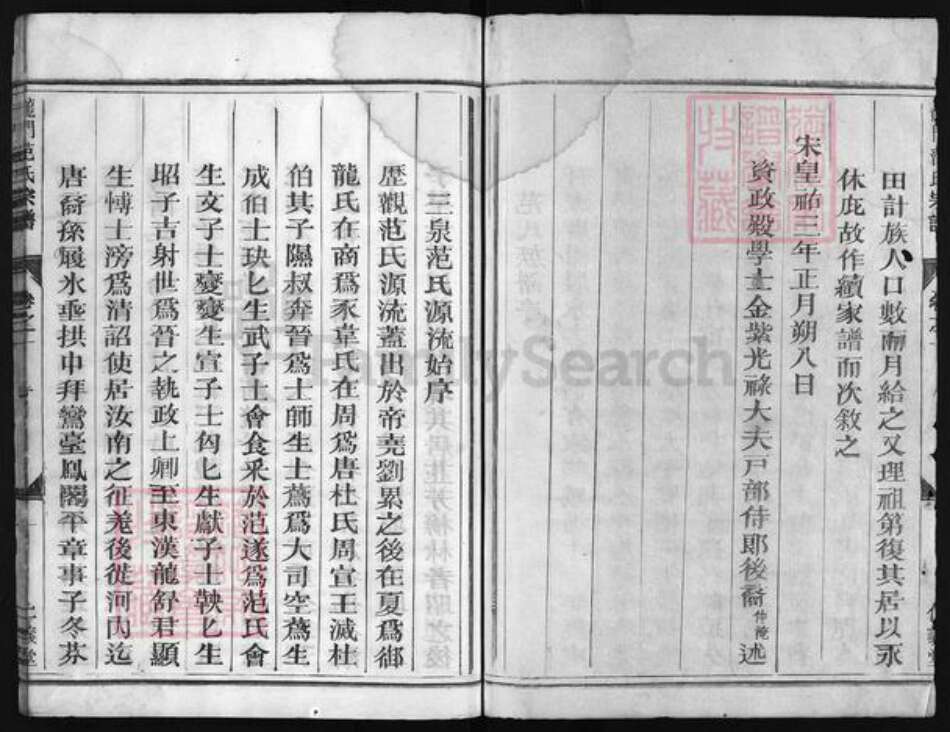 田計族人口數而月給之又理祖第復其居以永
休庇故作續家譜而次敘之
宋皇祐三年正月朔八日
資政殿學士金紫光祿大夫戶部侍郎後裔仲淹述
三泉范氏源流始序
歷觀范氏源流蓋出於帝堯劉累之後在夏為御
龍氏在商為豕韋氏在周為唐杜氏周宣王滅杜
伯其子隰叔奔晉為士師生士蒍為大司空蒍生
成伯士玦匕生武子士會食采於范遂為范氏會
生文子士燮燮生宣子士匄匕生獻子士鞅匕生
昭子吉射世為晉之執政上卿至東漢龍舒君顯
生博士滂為清詔使居汝南之征羗後從河內迄
唐裔孫履氷垂拱中拜鸞臺鳳閣平章事子冬芬
龍門范氏宗譜
FamilySearch